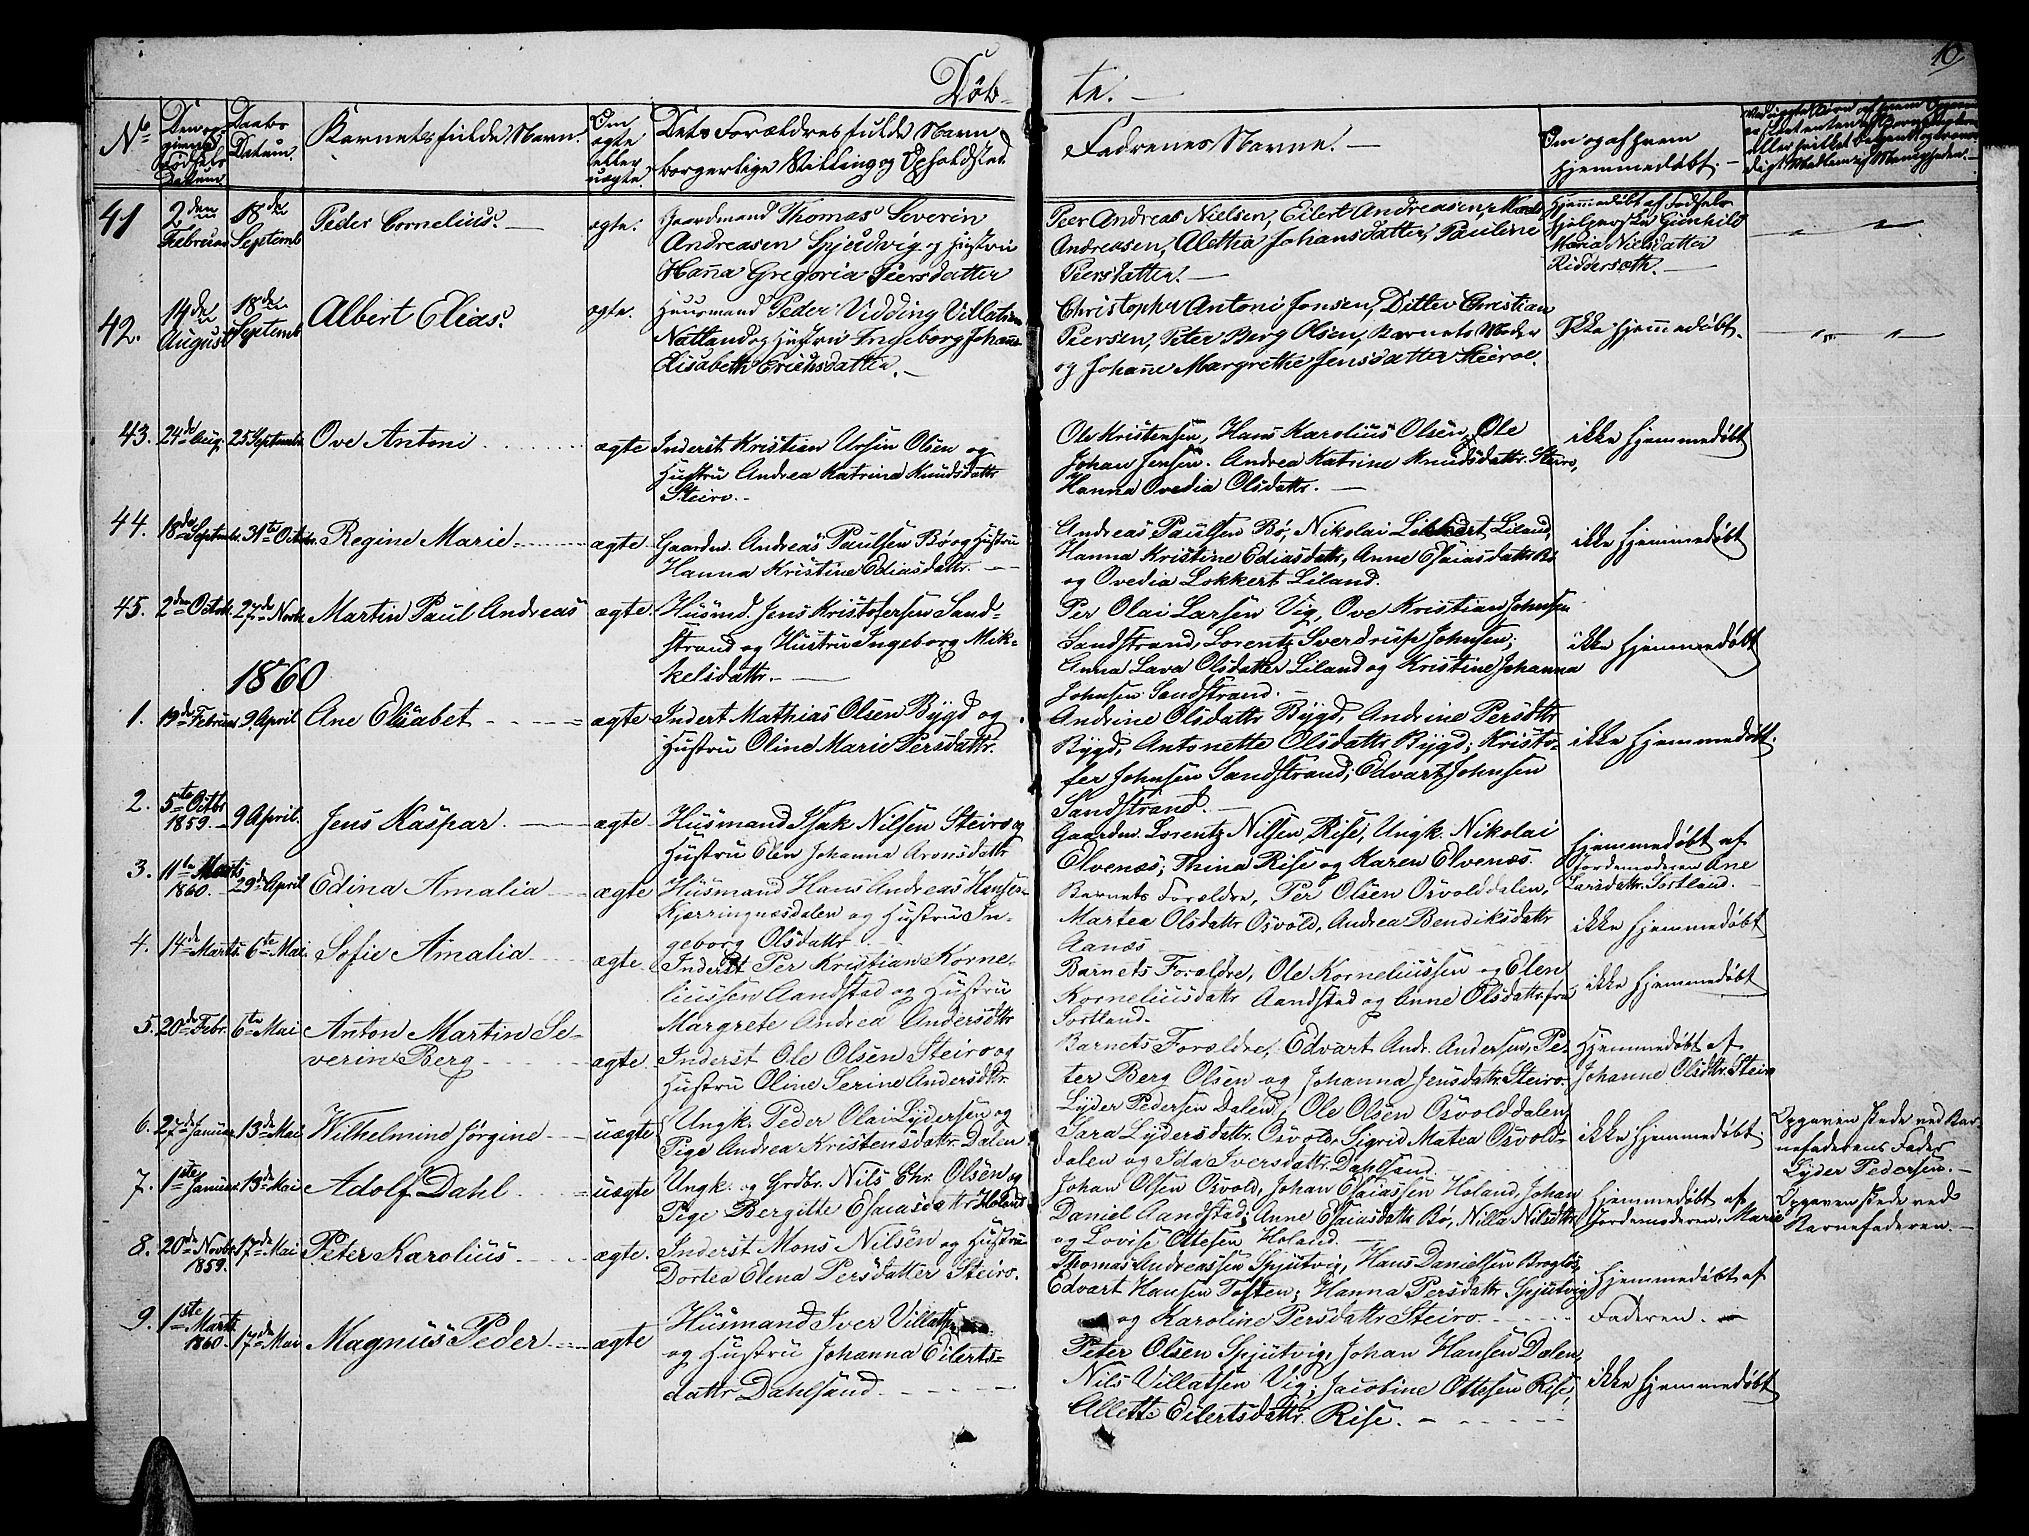 Døb-
te. —
10
No
Den og-
Fødsels
Datum
Daabs
Datum.
Barnets fulde Navn.
Om
ægte
eller
uægte.
Dets Forældres fulde Navn
borgerlige Stilling og Opholdsted.
Fadrenes Navne. —
Om og af hvem
hjemmedøbt. —
41
2den
Februar
18de
Septemb
Peder Cornelius. —
ægte.
Gaardmand Thomas Severin
Andreasen Spjudvig og Hustrue
Hanna Gregoria Peersdatter
Peer Andreas Nielsen, Eilert Andreasen,
Andreasen, Alethea Johansdatter, Pauline
Peersdatter. —
Hjemmedøbt af Fødsels-
hjelpersken Gjenhild
Maria Nielsdatter
Riddersæth. —
42.
14de
August
18de
Septemb
Albert Elias.
ægte.
Huusmand Peder Vidding Villatsen
Natland og Hustrue Ingeborg Johanne
Elisabeth Erichsdatter. —
Christopher Antoni Jonsen, Ditlev Christian
Peersen, Peter Berg Olsen, Barnets Moder
og Johanne Margrethe Jensdatter Steiroe.
Ikke hjemmedøbt.
43.
24de Aug.
25 Septemb.
Ove Antoni
ægte
Inderst Kristian Ursin Olsen og
Hustru Andrea Katrina Knudsdattr
Steiro. —
Ole Kristensen, Hans Karolius Olsen, Ole
Johan Jensen. Andrea Katrine Knudsdattr. Steiro,
Hanna Ovedia Olsdattr. —
ikke hjemmedøbt
44.
18de Septemb.
31te Octob.
Regine Marie
ægte.
Gaardm. Andreas Paulsen Bø og Hustru
Hanna Kristine Ediasdattr. —
Andreas Paulsen Bø, Nikolai Lokkert Liland,
Hanna Kristine Ediasdattr, Anne Esaiasdattr Bø
og Ovedia Lokkert Liland.
ikke hjemmedøbt
45.
2den Octob.
27de Novb.
Martin Paul Andreas
ægte.
Husmd. Jens Kristofersen Sand-
strand og Hustru Ingeborg Mik-
kelsdattr. —
Per Olai Larsen Vig, Ove Kristian Johnsen
Sandstrand, Lorentz Sverdrup Johnsen;
Anna Lava Olsdatter Liland og Kristine Johanna
Johnsen Sandstrand. —
ikke hjemmedøbt
1860
1.
19de Februar
9 April
Ane Elisabet
ægte
Inderst Mathias Olsen Bygd og
Hustru Oline Marie Persdattr.
Andrine Olsdattr Bygd, Andrine Persdttr
Bygd, Antonette Olsdattr Bygd; Kristo-
fer Johnsen Sandstrand; Edvart Johnsen
Sandstrand. —
ikke hjemmedøbt.
2.
5te Octbr
1859.
9 April.
Jens Kaspar. —
ægte
Husmand Isak Nilsen Steiro og
Hustru Elen Johanna Aronsdattr
Gaardm. Lorentz Nilsen Rise, Ungk. Nikolai
Elvenæs; Thina Rise og Karen Elvenæs.
Hjemmedøbt af
Jordemoderen Ane
Larsdattr. Sortland. —
3.
11te Marts
1860.
29de April
Edina Amalia
ægte
Husmand Hans Andreas Hansen
Kjerringnæsdalen og Hustru In-
geborg Olsdattr
Barnets Forældre, Per Olsen Osvolddalen,
Martea Olsdattr Osvold, Andrea Bendiksdattr
Aanæs —
ikke hjemmedøbt
4.
14de Marts.
6te Mai.
Sofie Amalia
ægte.
Inderst Per Kristian Korne-
liussen Aandstad og Hustru
Margrete Andrea Andersdttr
Barnets Forældre, Ole Korneliussen og Elen
Korneliusdattr Aandstad og Anne Olsdattr. fra
Sortland.
ikke hjemmedøbt
5.
20de Febr.
6te Mai
Anton Martin Se-
verin Berg
ægte.
Inderst Ole Olsen Steiro og
Hustru Oline Serine Andersdttr.
Barnets Forældre, Edvart Andr. Andersen, Pe-
ter Berg Olsen og Johanna Jensdattr. Steiro.
Hjemmedøbt af
Johanne Olsdttr. Steiro
6.
27de Januar.
13de Mai
Wilhelmine Jørgine
uægte
Ungk. Peder Olai Lydersen og
Pige Andrea Kristensdattr. Dalen
Lyder Pedersen Dalen, Ole Olsen Osvolddalen,
Sara Lydersdattr. Osvold, Sigrid Matea Osvold-
dalen og Ida Iversdattr. Dahlsand
ikke hjemmedøbt
Opgaven skede ved Bar-
nefaderens Fader
Lyder Pedersen. —
7.
1ste Januar.
13de Mai
Adolf Dahl
uægte
Ungk. og Grdbr. Nils Chr. Olsen og
Pige Bergitte Esaiasdattr Holand
Johan Olsen Osvold, Johan Esaiassen Holand, Johan
Daniel Aandstad; Anne Esaiasdattr Bø, Nilla Nilsdttr.
og Lovise Ottesen Holand. —
Hjemmedøbt af
Jordemoderen Marie
Opgaven skede ved
Barnefaderen. —
8.
20de Novbr.
1859.
17de Mai
Peter Karolius
ægte.
Inderst Mons Nilsen og Hustru
Dortea Elena Persdatter Steiro.
Thomas Andreassen Spjutvig, Hans Danielsen Brogløs,
Edvart Hansen Toften; Hanna Persdattr Spjutvig
og Karoline Persdattr Steiro
Hjemmedøbt af
Faderen. —
9.
1ste Marts
1860
17de Mai
Magnus Peder
ægte
Husmand Iver Villats
og Hustru Johanna Eilerts-
dattr Dahlsand
Peter Olsen Spjutvig, Johan Hansen Dalen,
Nils Villatsen Vig; Jacobine Ottesen Rise,
Allette Eilertsdattr. Rise. —
ikke hjemmedøbt